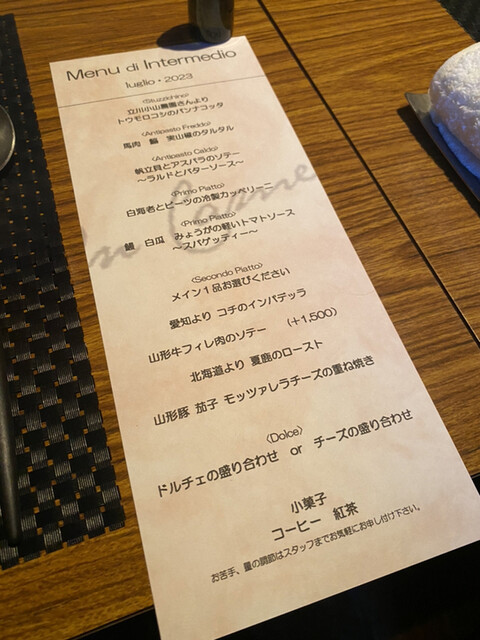 Menu di Intermedio
luglio・2023
<Stuzzichino>
立川小山農園さんより
トウモロコシのパンナコッタ
<Antipasto Freddo>
馬肉 鮎 実山椒のタルタル
<Antipasto Caldo>
帆立貝とアスパラのソテー
～ラルドとバターソース～
<Primo Piatto>
白海老とビーツの冷製カッペリーニ
<Primo Piatto>
白瓜 みょうがの軽いトマトソース
～スパゲッティー～
<Secondo Piatto>
メイン1品お選びください
愛知より コチのインパデッラ
山形牛フィレ肉のソテー (+1,500)
北海道より 夏鹿のロースト
山形豚 茄子 モッツァレラチーズの重ね焼き
<Dolce>
ドルチェの盛り合わせ or チーズの盛り合わせ
小菓子
コーヒー 紅茶
お苦手、量の調節はスタッフまでお気軽にお申し付け下さい。